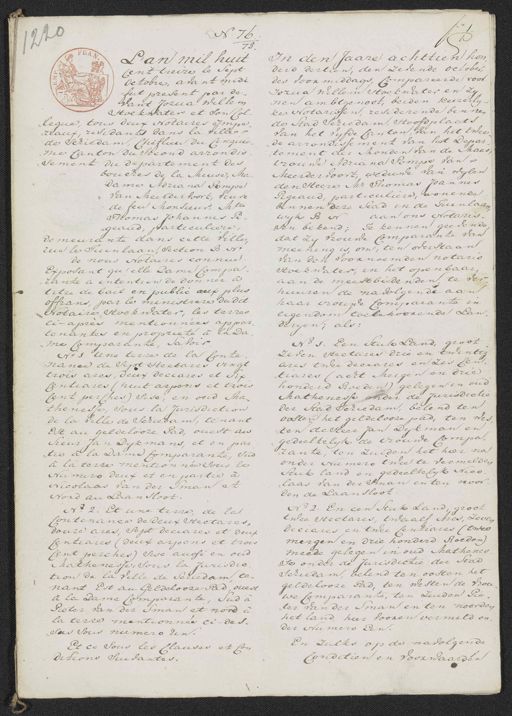 1220
N° 76
78
L'an mil huit
Cent treize le Sept
Octobre, avant midi
fut présent par de-
vant Josua Willem
Hoekwater et Son Col-
legue, tous deux Notaires Impé-
riaux, résidants dans la Ville
de Schiedam, Cheflieu du Cinquie-
me Canton du Second arrondis-
sement du département des
bouches de la Meuse, Ma-
dame Adriana Pompe
van Meerdervoort, veuve
de feu Monsieur
Thomas Johannes Pi-
geaud, particuliere,
demeurante dans cette Ville,
sur le Tuinlaan, Section B N°
de nous Notaires connue
Exposant qu'elle Dame Compa-
rante a intention de donner à
titre de bail en public au plus
offrans, par le ministere dudit
Notaire Hoekwater, les terres
ci-après mentionnées appar-
tenantes en propriété à la Da-
me Comparante, Savoir
N° 1 une terre de la Conte-
nance de Sept Hectares, vingt
trois ares, huit deciares et Six
Centiares (huit arpens et trois
Cent perches) Sise, en oud Ma-
thenesse, Sous la Jurisdiction
de la Ville de Schiedam, tenant
Est au geldeloze Pad, ouest au
Sieur Jan Dijkmans, et en par-
tie à la Dame Comparante, Sud
à la terre mentionnée Sous le
Numero deux et en partie à
Nicolaas van der Sman et
Nord au Laan Sloot.
N° 2. Et une terre, de la
Contenance de deux Hectares,
douze ares, Sept deciares et deux
Centiares (deux arpens et trois
Cent perches) Sise aussi en oud
Mathenesse, Sous la Jurisdic-
tion de la Ville de Schiedam, te-
nant Est au Geldeloze Pad, ouest
à la Dame Comparante, Sud à
Pieter van der Sman et nord à
la terre mentionnée ci-des-
sus Sous numero Un.
Et ce sous les Clauses et Con-
ditions Suivantes.
In den Jaare achttien hon-
derd dertien, den Zevende october
des voormiddags, Compareerde voor
Josua Willem Hoekwater en Zy-
nen ambtgenoot, beiden Keizerly-
ke Notarissen, resideerende binnen
de Stad Schiedam Hoofdplaats
van het Vyfde Canton van het twee-
de arrondissement van het Depar-
tement der Monden van de Maas,
vrouwe Adriana Pompe van
Meerdervoort, weduwe van wylen
den Heere Mr Thomas Joannes
Pigeaud, particuliere, wonende
binnen deze Stad op de Tuinlaan
wyk B N° aan ons Notaris-
sen bekend; Te kennen geevende
dat Zy vrouwe Comparante van
meening is, om, ten overstaan
van den voornoemden notaris
Hoekwater, in het openbaar,
aan de meestbiedenden te ver-
huuren de natenoemene aan
haar vrouwe Comparante in
eigendom toebehoorende Lan-
deryen; als:
N° 1. Een Stuk Land, groot
Zeven Hectares drie en twintig
ares agt deciares en Zes Cen-
tiares (acht Morgen en drie
honderd Roeden) gelegen in oud
Mathenesse onder de Jurisdictie
der Stad Schiedam, belend ten
oosten het geldeloze pad, ten Wes-
ten de Heer Jan Dykman en
gedeeltelyk de vrouwe Compa-
rante, ten Zuiden het hier na
onder Numero twee te vermelden
Stuk Land en gedeeltelyk Nico-
laas van der Sman en ten noor-
den de Laansloot
N° 2. En een Stuk Land, groot
twee Hectares, twaalf Ares, Zeven
deciares en twee Centiares (twee
morgen en drie honderd Roeden)
meede gelegen in oud Mathenes-
se onder de Jurisdictie der Stad
Schiedam, belend ten oosten het
geldeloze Pad, ten Westen de Vrou-
we Comparante, ten Zuiden Pie-
ter van der Sman en ten noorden
het Land hier voren vermeld on-
der Numero Een.
En Zulks op de navolgende
Conditien en Voorwaarden